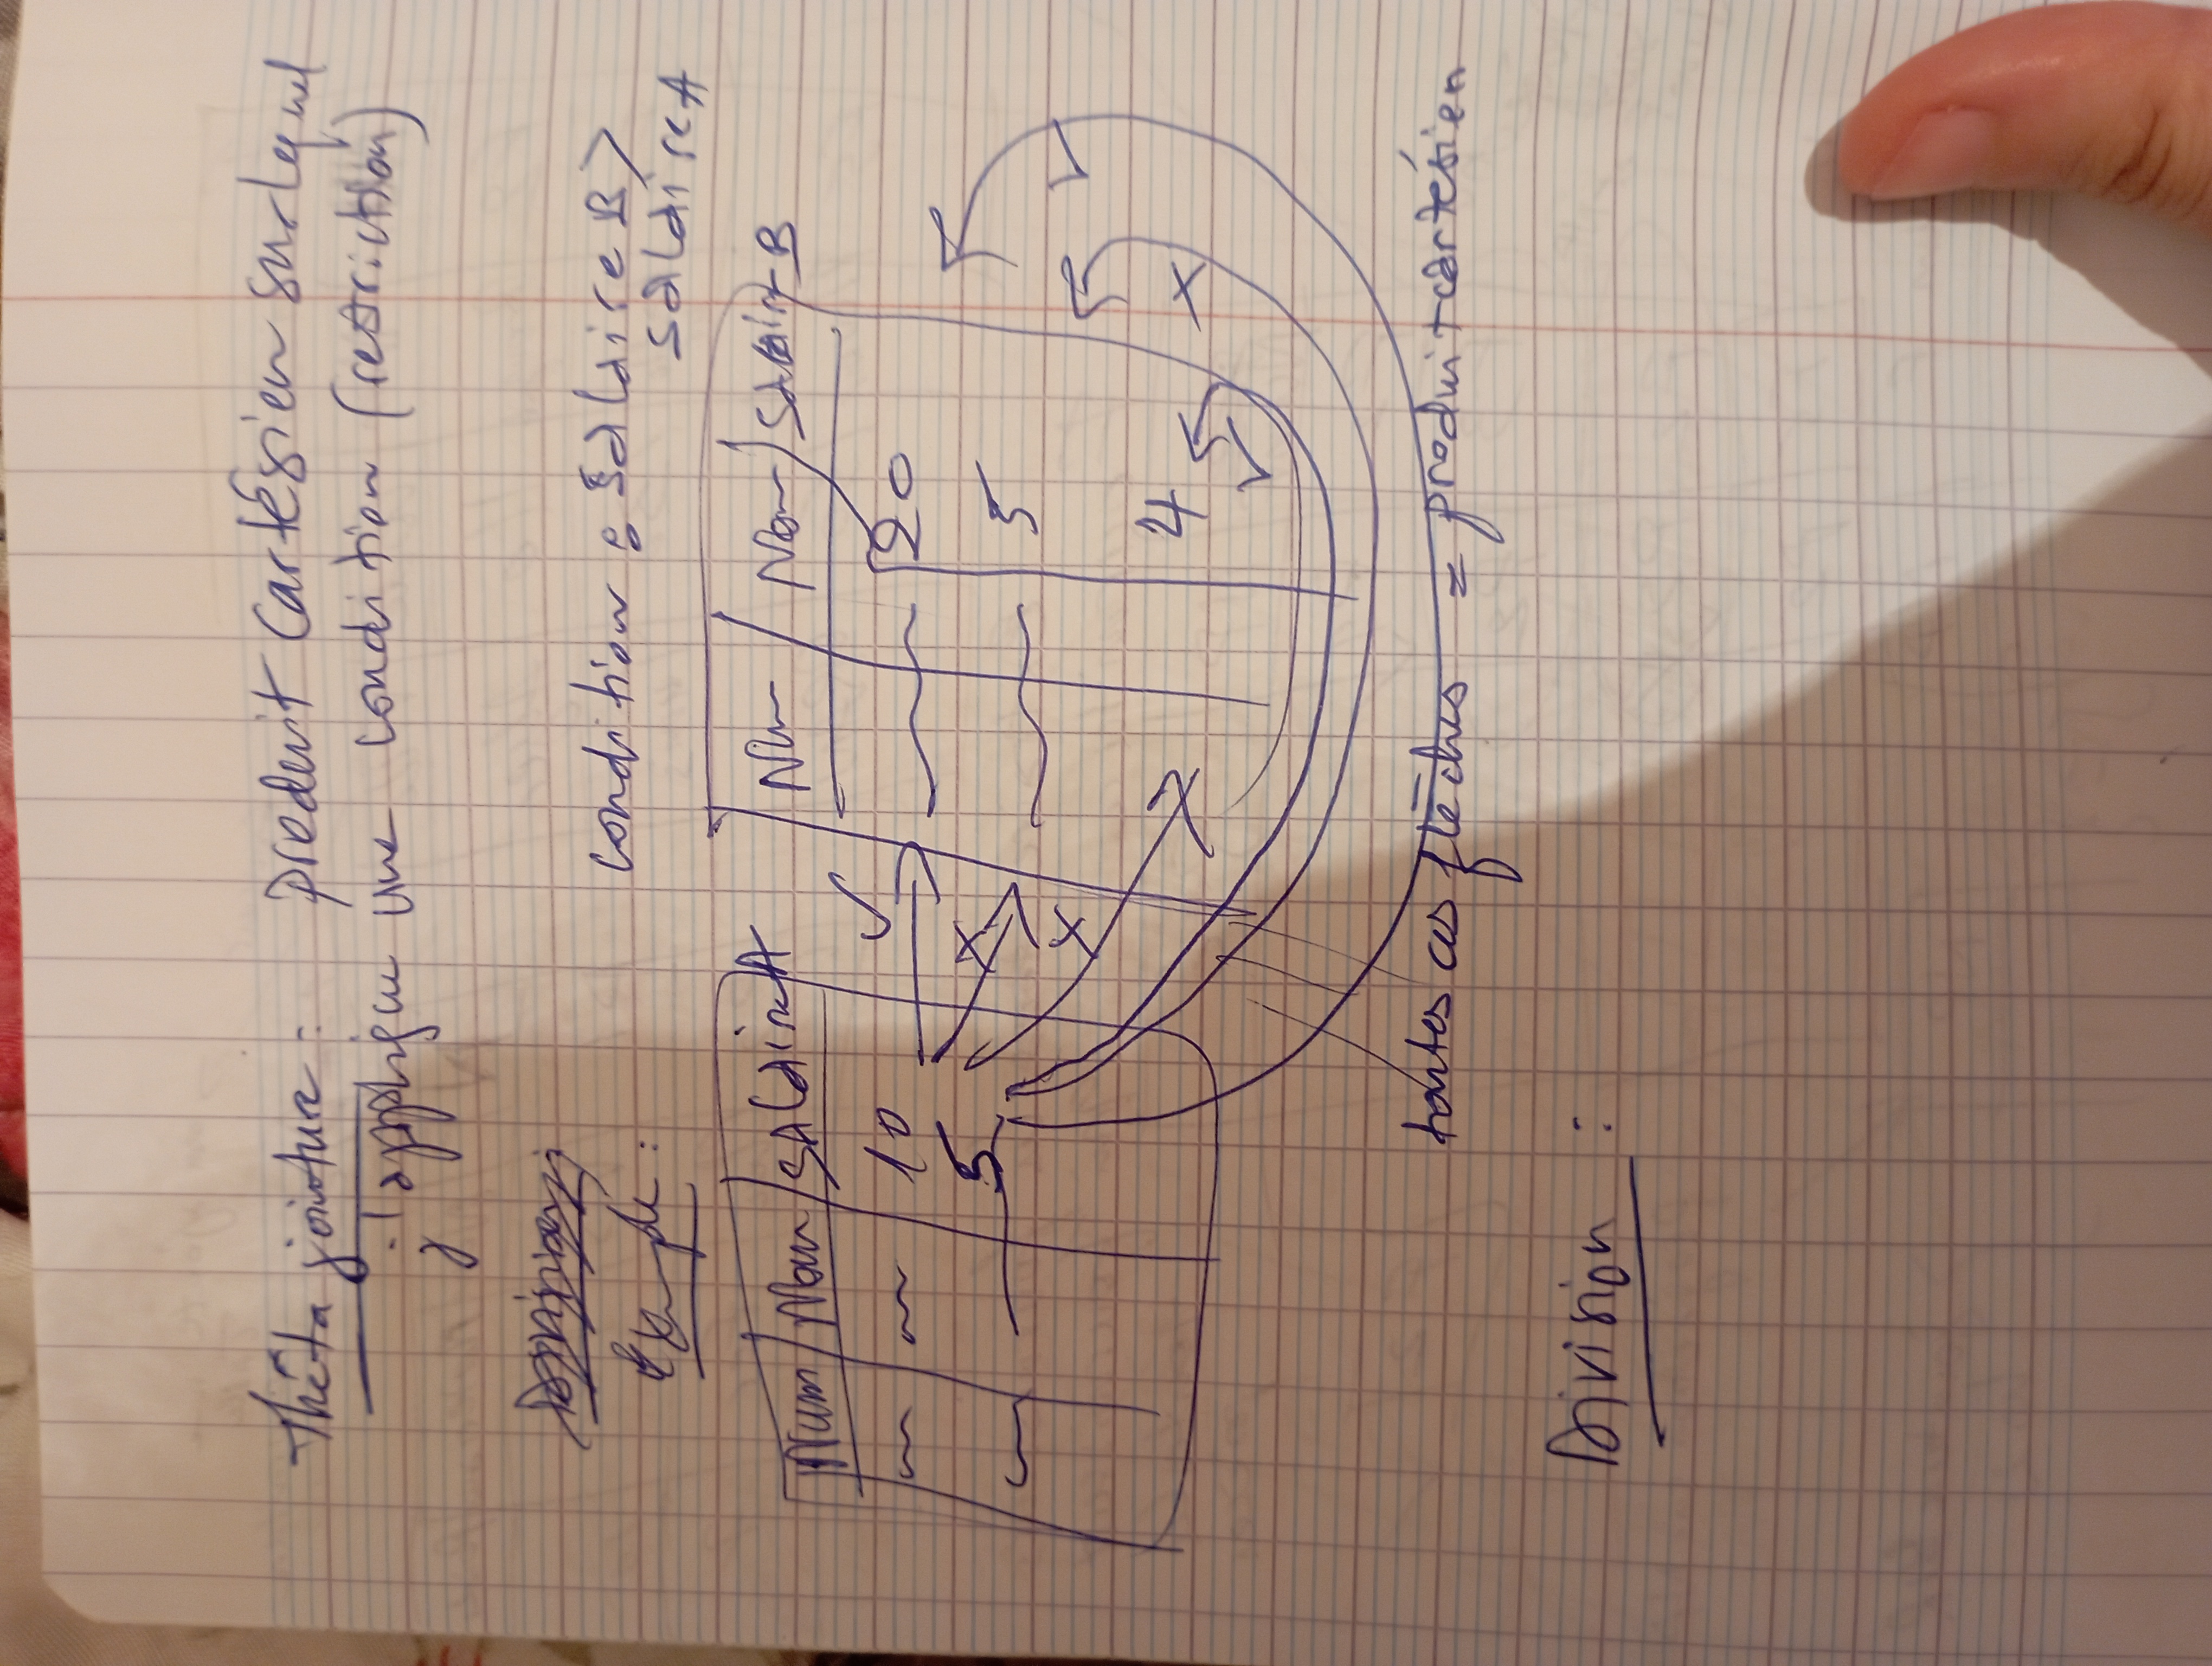 Thêta jointure : produit Cartésien sur lequel
j'applique une condition (restriction)
Exemple :
condition : SalaireB >
SalaireA
Num | Nom | SalaireA
Num | Nom | SalaireB
10
20
5
5
4
toutes ces flèches = produit cartésien
Division :